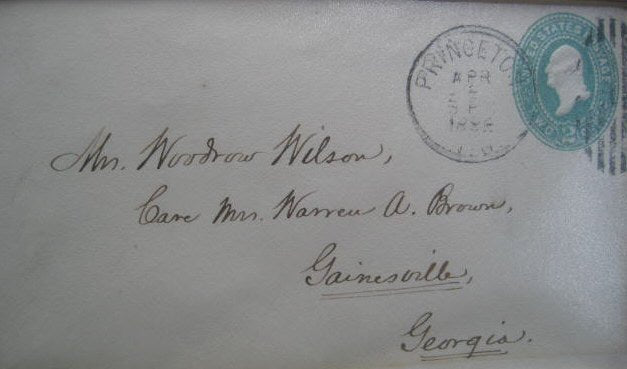 PRINCETON
APR
2
5 P
1886
N.J.
UNITED STATES
Mr. Woodrow Wilson,
Care Mrs. Warren A. Brown,
Gainesville,
Georgia.